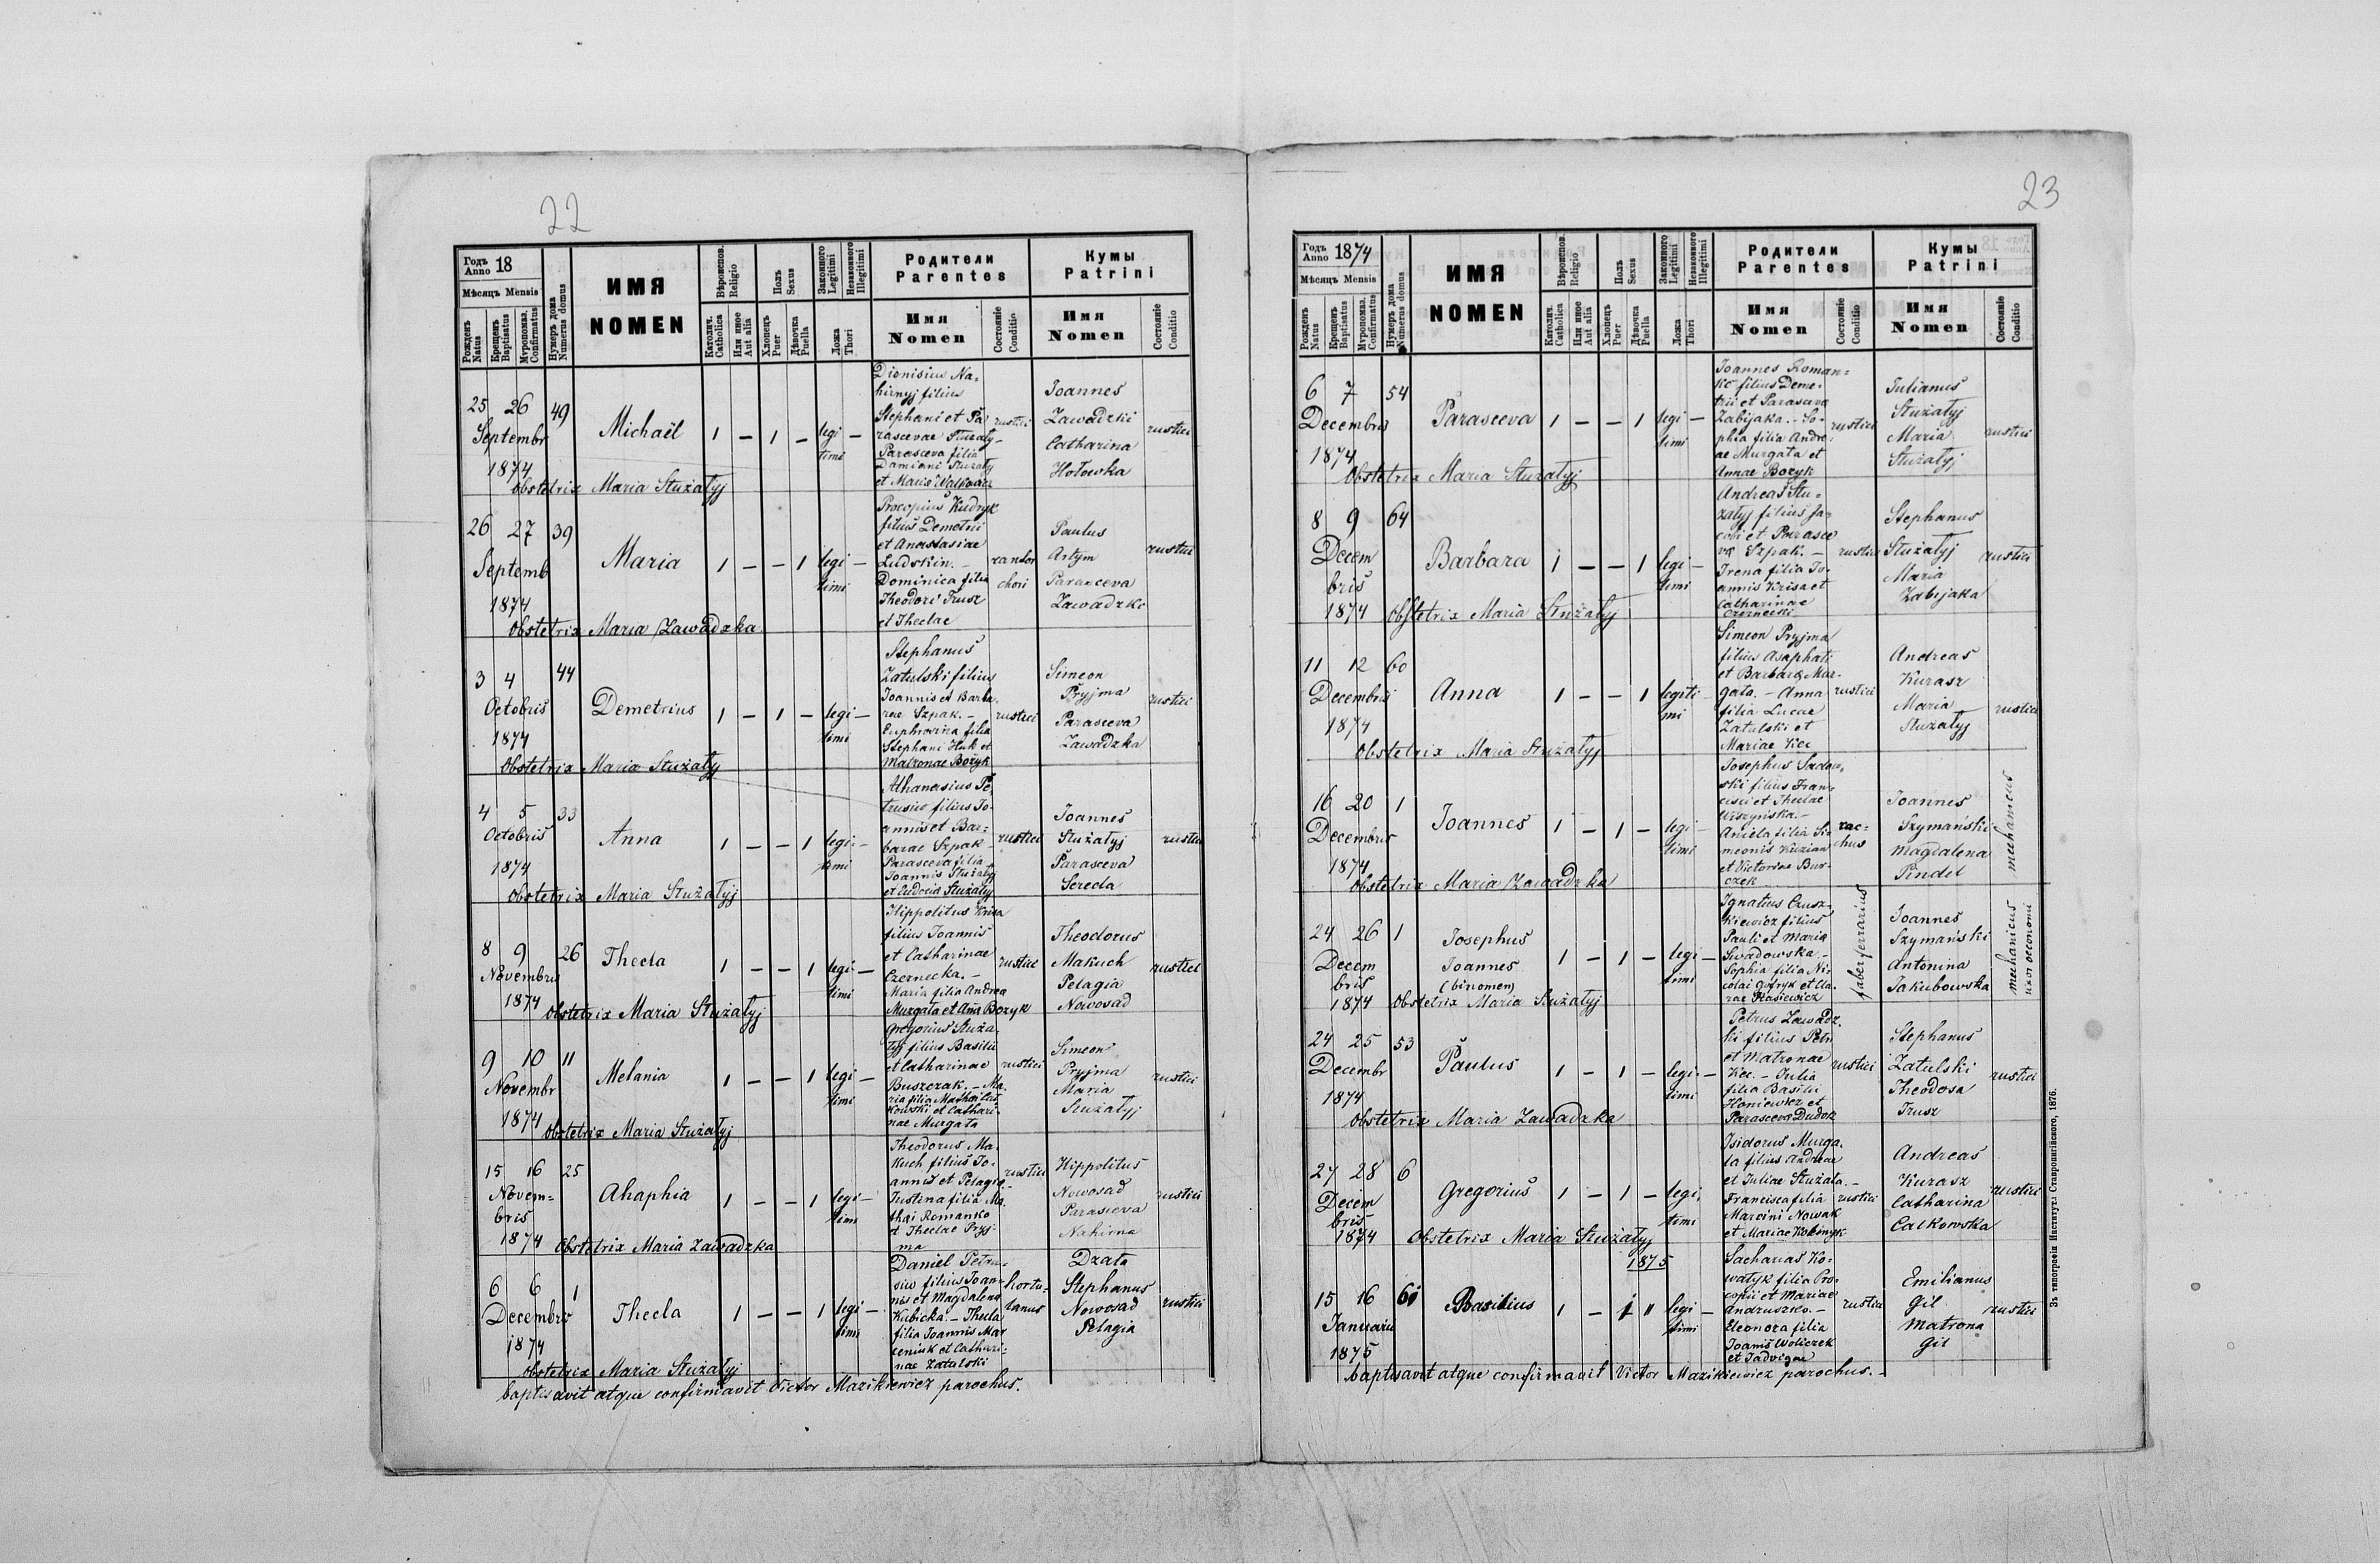 22
Годъ Anno 18
Мѣсяцъ Mensis
Рожденъ Natus
Крещенъ Baptisatus
Мѵропомаз. Confirmatus
Нумеръ дома Numerus domus
ИМЯ
NOMEN
Вѣроиспов. Religio
Католич. Catholica
Или иное Aut alia
Полъ Sexus
Хлопецъ Puer
Дѣвочка Puella
Законного Legitimi
Незаконного Illegitimi
Ложа Thori
Родители
Parentes
Имя
Nomen
Состояніе Conditio
Кумы
Patrini
Имя
Nomen
Состояніе Conditio
25 26 49
Septembr
1874
Michaël
1 – 1 –
legi
timi
–
Dionisius Na-
hirnyj filius
Stephani et Pa
rascevae Stuzaty-
Parasceva filia
Damiani Stuzaty
et Mariae
rustici
Joannes
Zawadzki
Catharina
Hołowka
rustici
Obstetrix Maria Stuzałyj
26 27 39
Septemb
1874
Maria
1 – – 1
legi
timi
–
Procopius Kudryk
filius Demetrii
et Anastasiae
Ludskin. –
Dominica filia
Theodori Trusz
et Theclae
cantor
chori
Paulus
Artym
Parasceva
Zawadzka
rustici
Obstetrix Maria Zawadzka
3 4 44
Octobris
1874
Demetrius
1 – 1 –
legi
timi
–
Stephanus
Zatulski filius
Joannis et Barba-
rae Szpak. –
Euphrosina filia
Stephani Huk et
Matronae Bozyk
rustici
Simeon
Pryjma
Parasceva
Zawadzka
rustici
Obstetrix Maria Stuzałyj
4 5 33
Octobris
1874
Anna
1 – – 1
legi-
timi
–
Athanasius Pe
trusiw filius Jo-
annis et Bar-
barae Szpak –
Parasceva filia
Joannis Stuzałyj
et Eudocia Stuzałyj
rustici
Joannes
Stuzałyj
Parasceva
Sereda
rustici
Obstetrix Maria Stuzałyj
8 9 26
Novembris
1874
Thecla
1 – – 1
legi-
timi
–
Hippolitus Krisa
filius Joannis
et Catharinae
Czernecka. –
Maria filia Andrea
Murgata et Ana Bozyk
rustici
Theodorus
Makuch
Pelagia
Nowosad
rustici
Obstetrix Maria Stuzałyj
9 10 11
Novembr
1874
Melania
1 – – 1
legi
timi
–
Gregorius Stuza-
łyj filius Basilii
et Catharinae
Buszczak. – Ma-
ria filia Mathei
kowski et Cathari-
nae Murgata
rustici
Simeon
Pryjma
Maria
Stuzałyj
rustici
Obstetrix Maria Stuzałyj
15 16 25
Novem-
bris
1874
Ahaphia
1 – – 1
legi
timi
–
Theodorus Ma-
kuch filius Jo-
annis et Pelagia –
Justina filia Ma-
thei Romanko
et Theclae Pryj-
ma
rustici
Hippolitus
Nowosad
Parasceva
Nahirna
rustici
Obstetrix Maria Zawadzka
6 6 1
Decembris
1874
Thecla
1 – – 1
legi
timi
–
Daniel Petru-
siw filius Joan-
nis et Magdalena
Kubicka. – Thecla
filia Joannis Mar
ceniuk et Cathari-
nae Zatulski
hortu-
lanus
Dzała
Stephanus
Nowosad
Pelagia
rustici
Obstetrix Maria Stuzałyj
baptisavit atque confirmavit Victor Mazikiewicz parochus.
23
Годъ Anno 1874
Мѣсяцъ Mensis
Рожденъ Natus
Крещенъ Baptisatus
Мѵропомаз. Confirmatus
Нумеръ дома Numerus domus
ИМЯ
NOMEN
Вѣроиспов. Religio
Католич. Catholica
Или иное Aut alia
Полъ Sexus
Хлопецъ Puer
Дѣвочка Puella
Законного Legitimi
Незаконного Illegitimi
Ложа Thori
Родители
Parentes
Имя
Nomen
Состояніе Conditio
Кумы
Patrini
Имя
Nomen
Состояніе Conditio
6 7 54
Decembris
1874
Parasceva
1 – – 1
legi
timi
–
Joannes Roman-
ko filius Deme-
trii et Parasceva
Zabijaka. – So-
phia filia Andre-
ae Murgata et
Annae Bozyk
rustici
Julianus
Stuzałyj
Maria
Stuzałyj
rustici
Obstetrix Maria Stuzałyj
8 9 64
Decem
bris
1874
Barbara
1 – – 1
legi
timi
–
Andreas Stu-
załyj filius Ja-
cobi et Parasce
va Szpak. –
Irena filia Jo-
annis Krisa et
Catharinae
Czernecki
rustici
Stephanus
Stuzałyj
Maria
Zabijaka
rustici
Obstetrix Maria Stuzałyj
11 12 60
Decembris
1874
Anna
1 – – 1
legiti
mi
–
Simeon Pryjma
filius Asaphati
et Barbara Mur-
gata. – Anna
filia Lucae
Zatulski et
Mariae Kec
rustici
Andreas
Kurasz
Maria
Stuzałyj
rustici
Obstetrix Maria Stuzałyj
16 20 1
Decembris
1874
Joannes
1 – 1 –
legi
timi
–
Josephus Sadow-
ski filius Fran-
cisci et Theclae
Wiszyńska. –
Aniela filia Si-
meonis Kuzian
et Victoriae Bur-
czek
rac-
chus
Joannes
Szymański
Magdalena
Pindel
mechanicus
Obstetrix Maria Zawadzka
24 26 1
Decem
bris
1874
Josephus
Joannes
(binomen)
1 – 1 –
legi
timi
–
Ignatius Crusz-
kiewicz filius
Pauli et Maria
Swadowska. –
Sophia filia Ni-
colai Gyfryk et Cla-
rae Stasiewicz
faber ferrarius
Joannes
Szymański
Antonina
Jakubowska
mechanicus
uxor oeconomi
Obstetrix Maria Stuzałyj
24 25 53
Decembr
1874
Paulus
1 – 1 –
legi-
timi
–
Petrus Zawadz-
ki filius Petri
et Matronae
Kec. – Julia
filia Basilii
Haniewicz et
Parasceva Dudok
rustici
Stephanus
Zatulski
Theodosa
Trusz
rustici
Obstetrix Maria Zawadzka
27 28 6
Decem
bris
1874
Gregorius
1 – 1 –
legi
timi
Isidorus Murga-
ta filius Andreae
et Juliae Stuzala. –
Francisca filia
Marcini Nowak
et Mariae Kobinyk
rustici
Andreas
Kurasz
Catharina
Calkowska
rustici
Obstetrix Maria Stuzałyj
1875
15 16 61
Januarii
1875
Basilius
1 – 1 "
legi
timi
–
Sacharias Ko-
watyk filia Pro-
copii et Mariae
Andruszko. –
Eleonora filia
Joanis Woliczek
et Jadvigae
rustici
Emilianus
Gil
Matrona
Gil
rustici
baptisavit atque confirmavit Victor Mazikiewicz parochus. –
Зъ типографіи Институт. Ставропигійского, 1876.